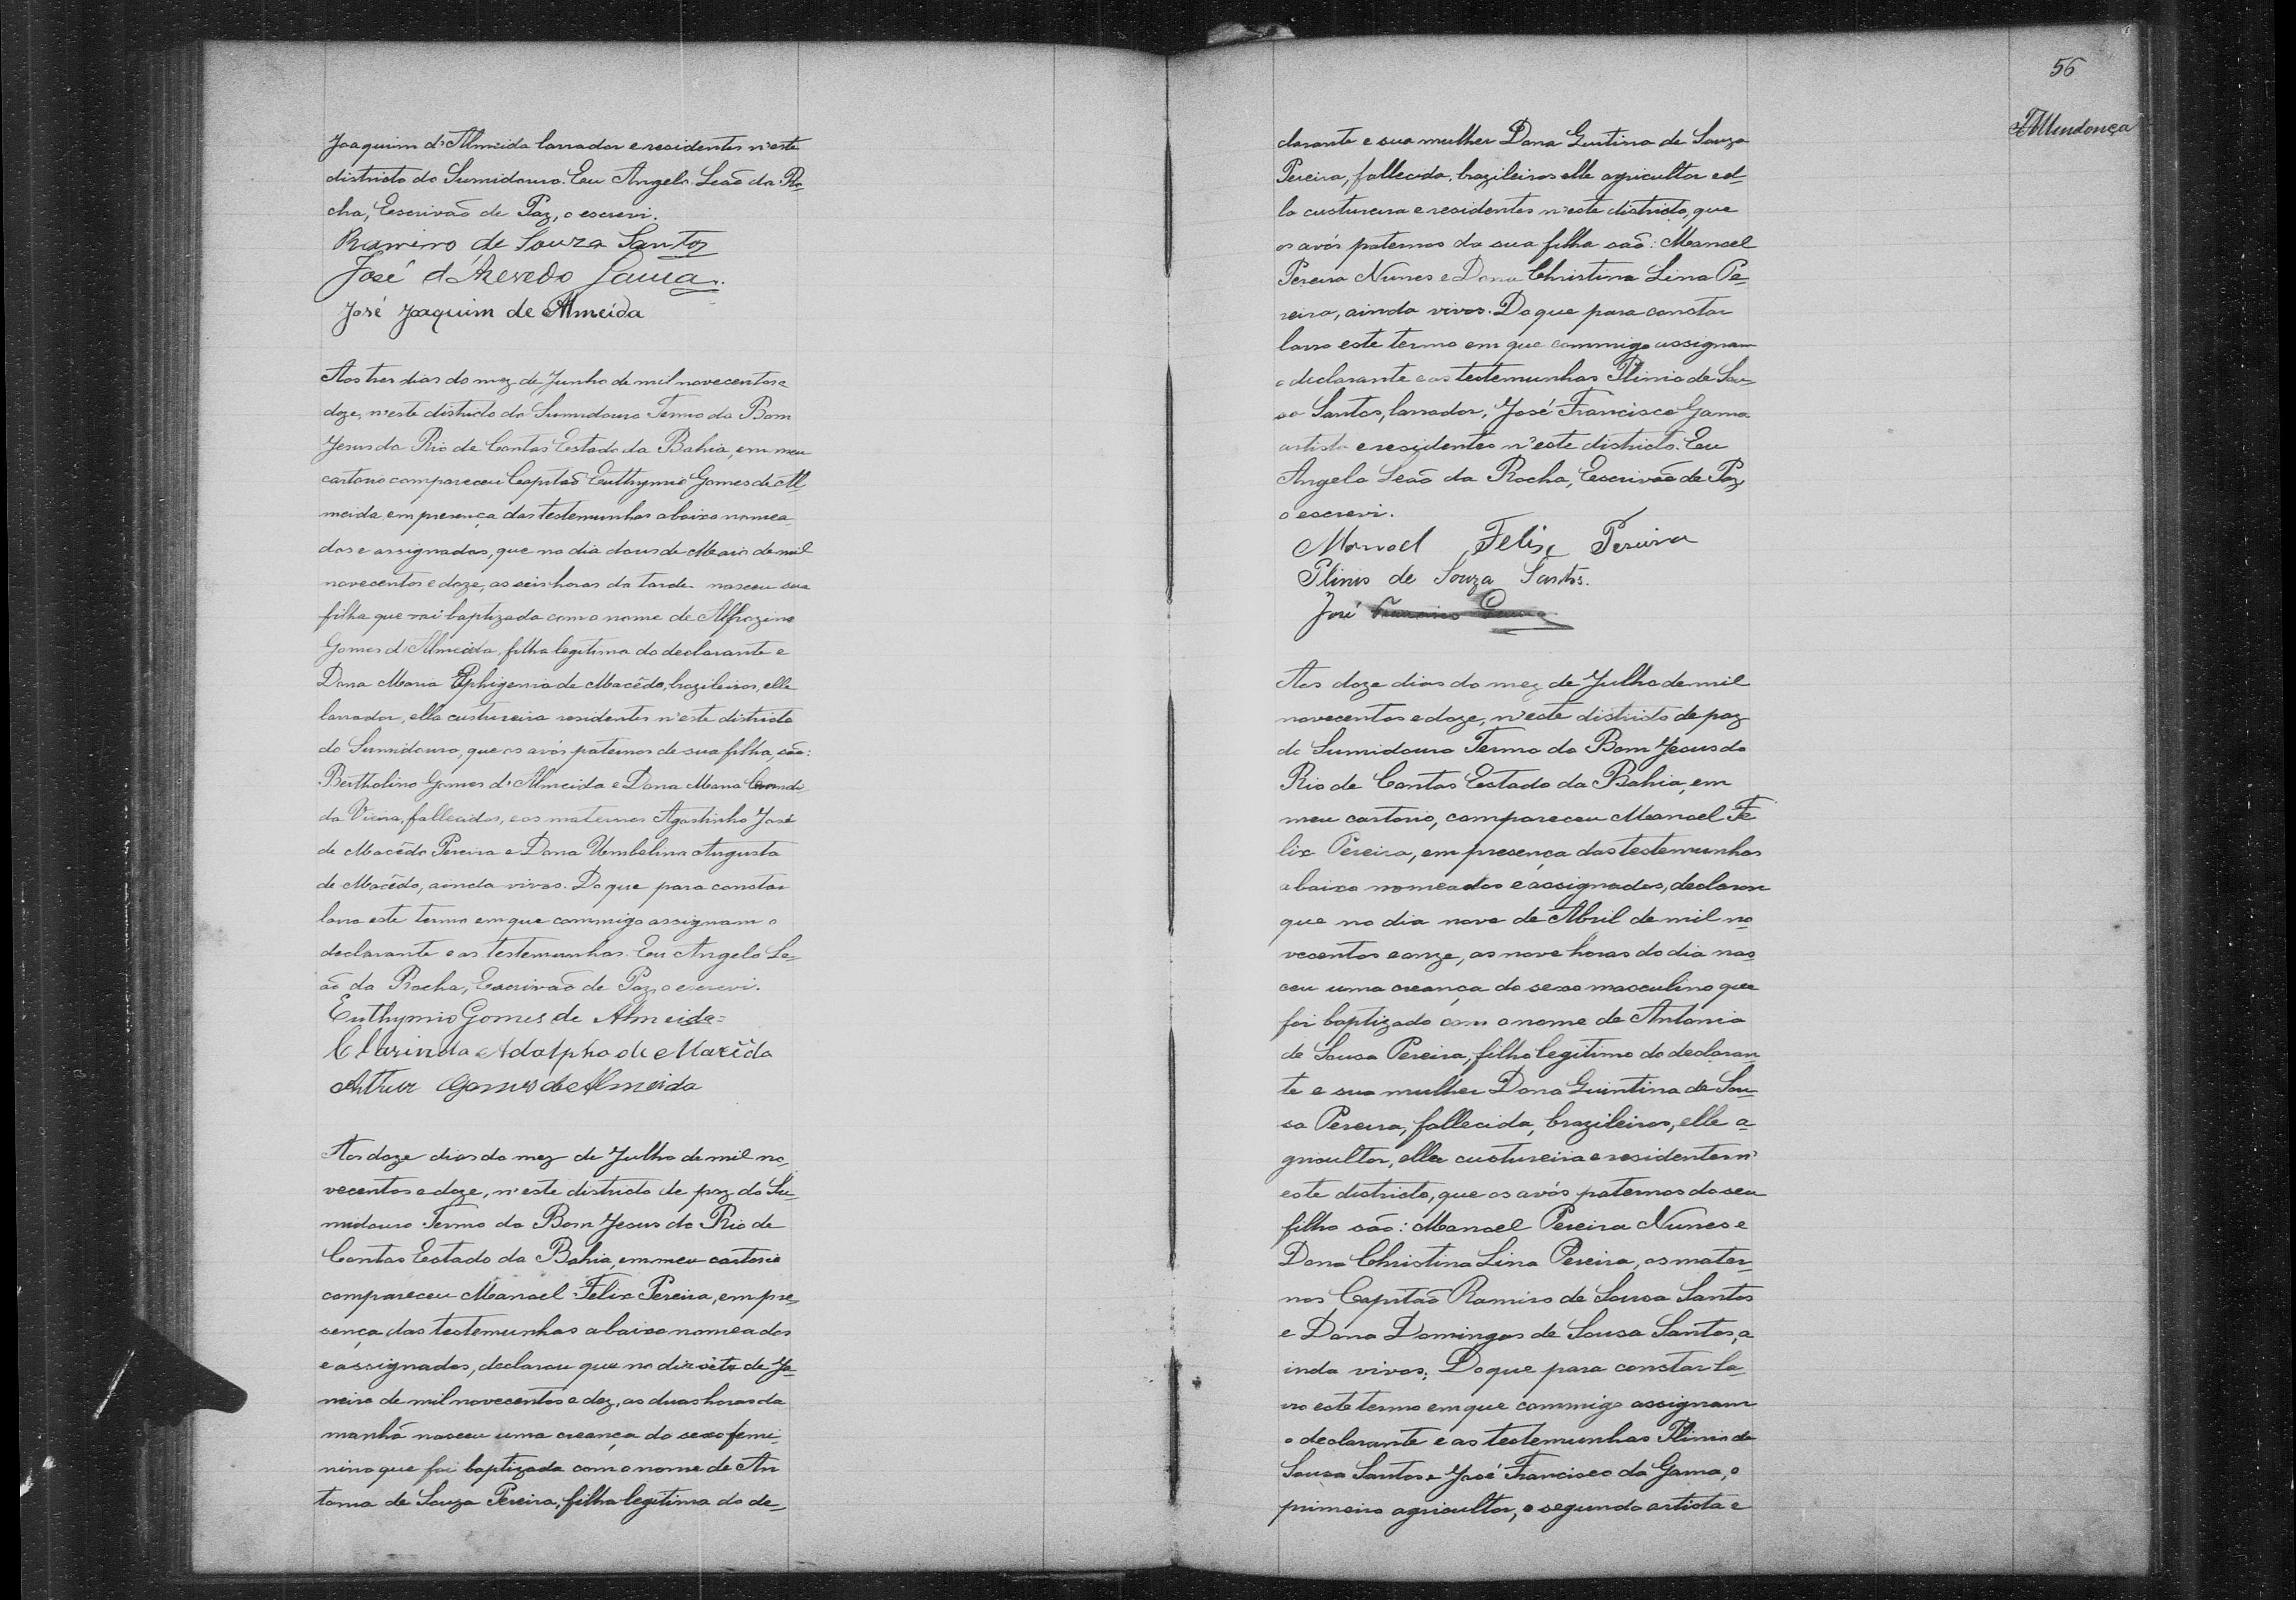 Joaquim d'Almeida lavrador e residentes n'este
districto do Sumidouro. Eu Angelo Leão da Ro-
cha, Escrivão de Paz, o escrevi.
Ramiro de Souza Santos
José d'Azevedo Gama.
José Joaquim de Almeida
Aos tres dias do mez de Junho de mil novecentos e
doze, n'este districto do Sumidouro Termo do Bom
Jesus do Rio de Contas Estado da Bahia, em meu
cartorio compareceu Capitão Euthymio Gomes de Al-
meida, em presença das testemunhas abaixo nomea-
das e assignadas, que no dia dous de Maio de mil
novecentos e doze, as seis horas da tarde nasceu sua
filha que vai baptizada com o nome de
Gomes d'Almeida, filha legitima do declarante e
Dona Maria Ephigenia de Macêdo, brazileiros, elle
lavrador, ella custureira residentes n'este districto
do Sumidouro, que os avós paternos de sua filha, são:
Bertholino Gomes d'Almeida e Dona Maria Candi-
da Vieira, fallecidos, e os maternos Agostinho José
de Macêdo Pereira e Dona Umbelina Augusta
de Macêdo, ainda vivos. Do que para constar
lavro este termo em que commigo assignam o
declarante e as testemunhas. Eu Angelo Le-
ão da Rocha, Escrivão de Paz, o escrevi.
Euthymio Gomes de Almeida=
Clarindo Adolpho de Macêdo
Arthur Gomes de Almeida
Aos doze dias do mez de Julho de mil no-
vecentos e doze, n'este districto de paz do Su-
midouro Termo do Bom Jesus do Rio de
Contas Estado da Bahia, em meu cartorio
compareceu Manoel Felix Pereira, em pre-
sença das testemunhas abaixo nomeados
e assignados, declarou que no dia sete de Ja-
neiro de mil novecentos e dez, as duas horas da
manhã nasceu uma creança do sexo femi-
nino que foi baptizada com o nome de An
tonia de Souza Pereira, filha legitima do de-
56
Mendonça
clarante e sua mulher Dona Guintina de Souza
Pereira, fallecida, brazileiros elle agricultor e el-
la custureira e residentes n'este districto, que
os avós paternos da sua filha são: Manoel
Pereira Nunes e Dona Christina Lina Pe-
reira, ainda vivos. Do que para constar
lavro este termo em que commigo assignam
o declarante e as testemunhas Plinio de Sou-
sa Santos, lavrador, José Francisco Gama
artista e residentes n'este districto. Eu
Angelo Leão da Rocha, Escrivão de Paz,
o escrevi.
Manoel Felix Pereira
Plinio de Souza Santos.
José Francisco Gama
Aos doze dias do mez de Julho de mil
novecentos e doze, n'este districto de paz
do Sumidouro Termo do Bom Jesus do
Rio de Contas Estado da Bahia, em
meu cartorio, compareceu Manoel Fe
lix Pereira, em presença das testemunhas
abaixo nomeados e assignados, declarou
que no dia nove de Abril de mil no-
vecentos e onze, as nove horas do dia nas-
ceu uma creança do sexo masculino que
foi baptizado com o nome de Antonio
de Sousa Pereira, filho legitimo do declaran-
te e sua mulher Dona Guintina de Sou-
sa Pereira, fallecida, brazileiros, elle a-
gricultor, ella custureira e residentes n'
este districto, que os avós paternos do seu
filho são: Manoel Pereira Nunes e
Dona Christina Lina Pereira, os mater-
nos Capitão Ramiro de Sousa Santos
e Dona Domingas de Sousa Santos, a
inda vivos; Do que para constar la-
vro este termo em que commigo assignam
o declarante e as testemunhas Plinio de
Sousa Santos e José Francisco da Gama, o
primeiro agricultor, o segundo artista e